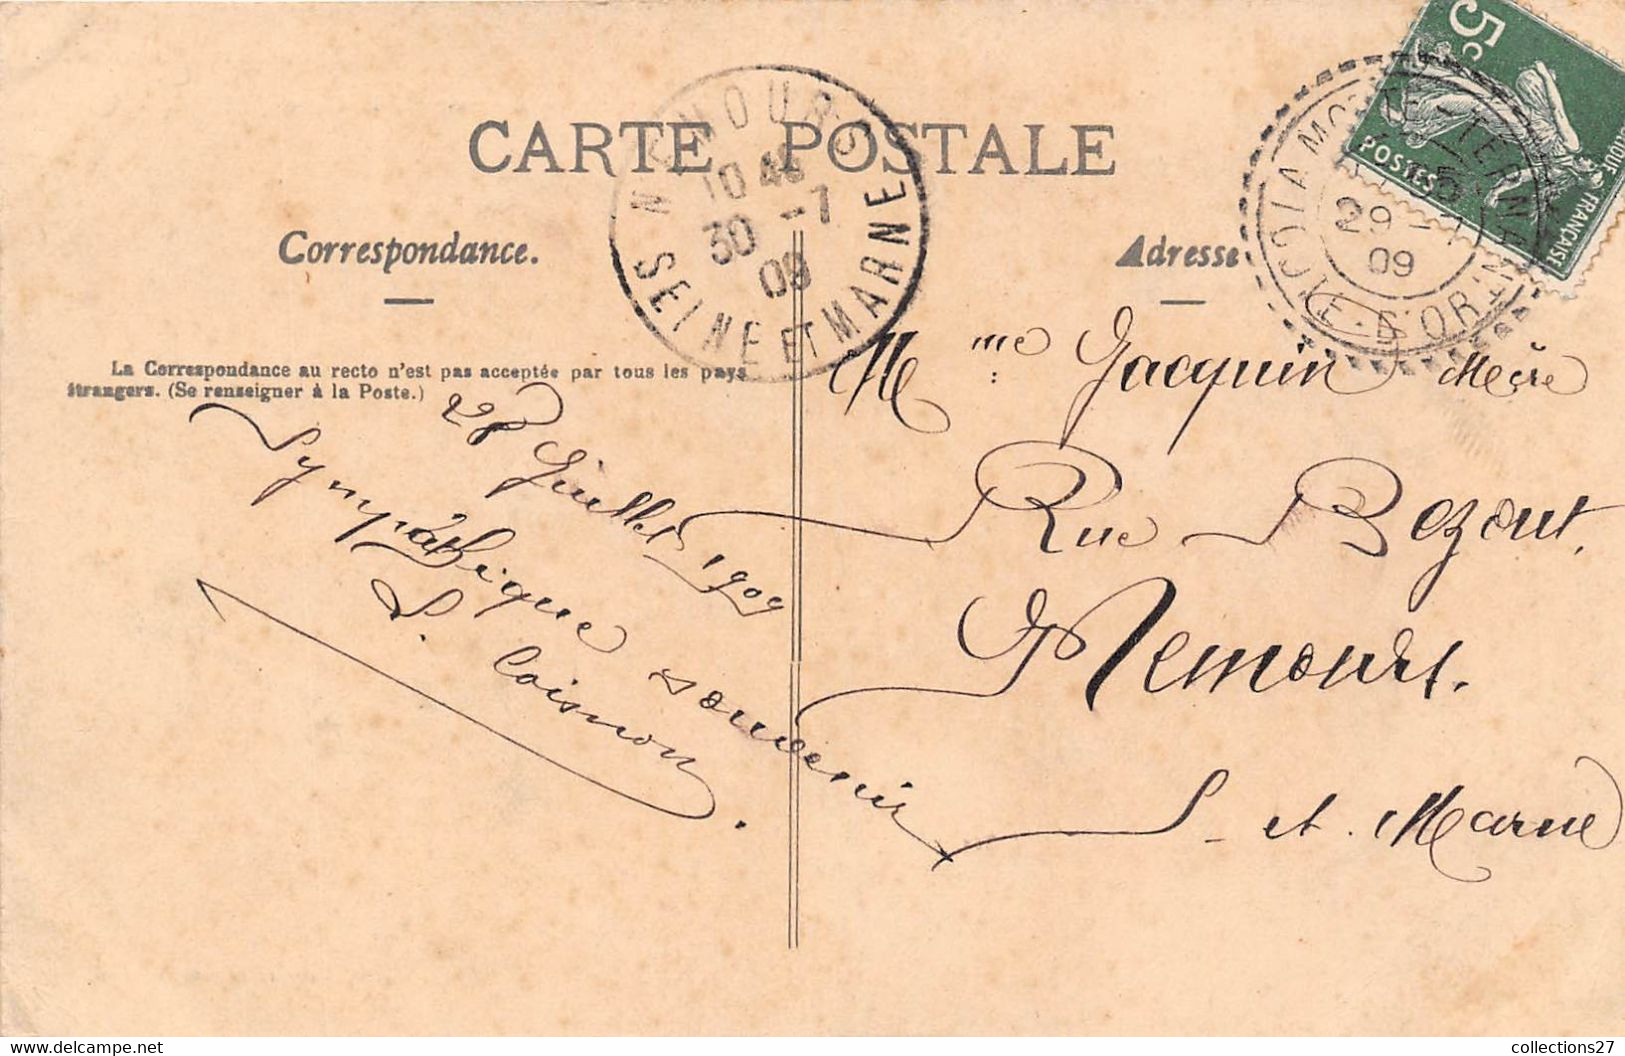 CARTE POSTALE
Correspondance.
Adresse
La Correspondance au recto n'est pas acceptée par tous les pays
étrangers. (Se renseigner à la Poste.)
NEMOURS
10 45
30 -7
09
SEINE ET MARNE
5c
POSTES
FRANÇAISE
29 -7
09
28 Juillet 1909
Sympathique souvenir
L. Coisnon
Mme Jacquin Mère
Rue Bezout.
Nemours.
S. et Marne
collections27